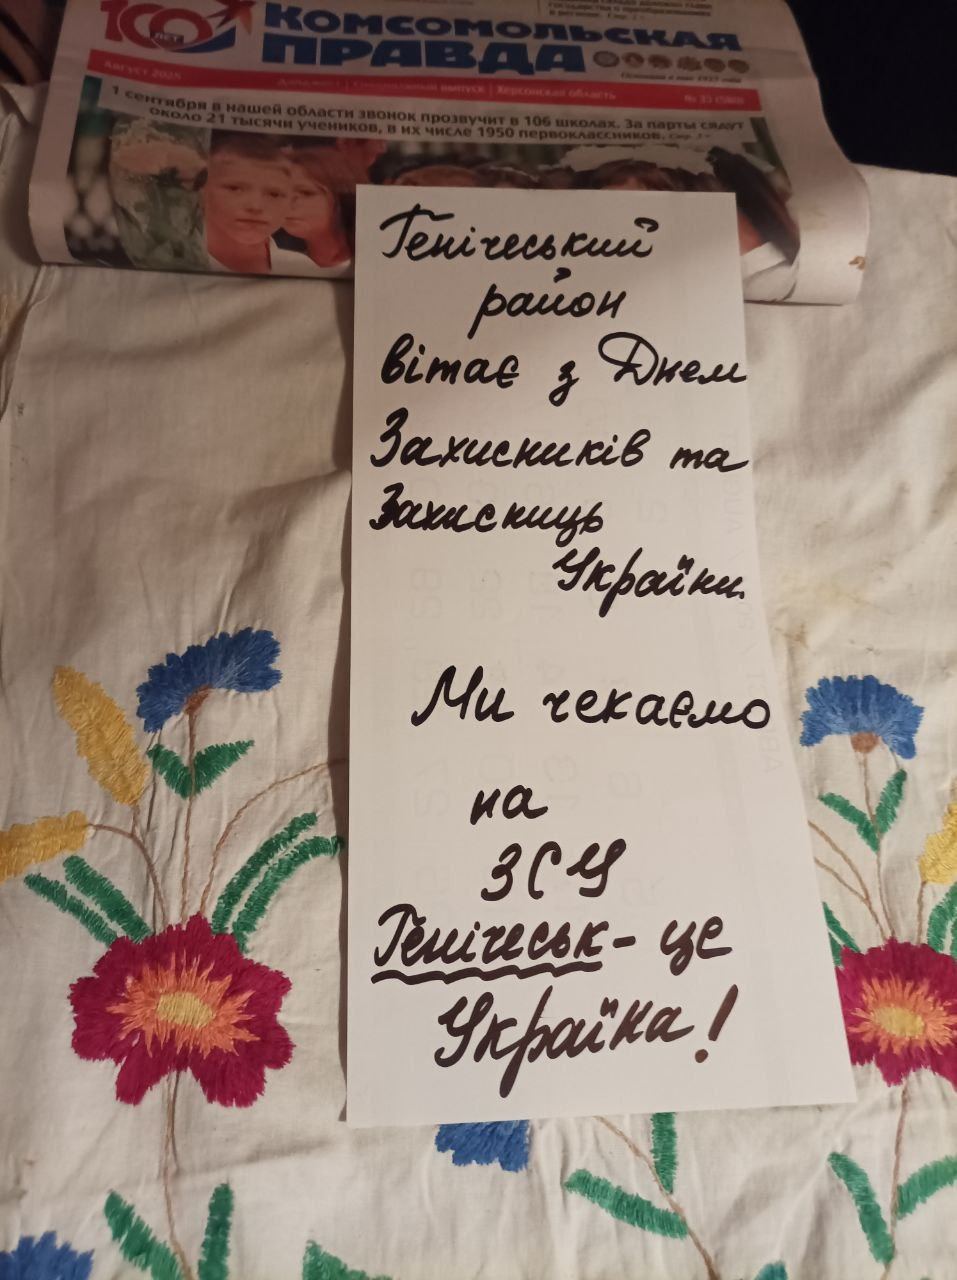 100 ЛЕТ
КОМСОМОЛЬСКАЯ
ПРАВДА
Август 2025
Херсонская область
1 сентября в нашей области звонок прозвучит в 106 школах. За парты сядут
около 21 тысячи учеников, в их числе 1950 первоклассников.
Генічеський
район
вітає з Днем
Захисників та
Захисниць
України.
Ми чекаємо
на
ЗСУ
Генічеськ - це
Україна!